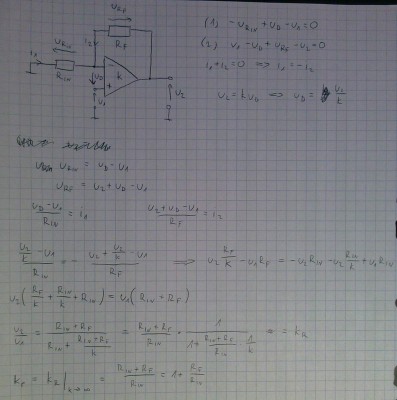 U_RF
R_F
i_1
U_RIN
R_IN
i_2
U_D
k
U_1
U_2
(1) -U_RIN + U_D - U_1 = 0
(2) U_1 - U_D + U_RF - U_2 = 0
i_1 + i_2 = 0 => i_1 = -i_2
U_2 = k U_D => U_D = U_2/k
U_RIN = U_D - U_1
U_RF = U_2 + U_D - U_1
(U_D - U_1)/R_IN = i_1 (U_2 + U_D - U_1)/R_F = i_2
(U_2/k - U_1)/R_IN = - (U_2 + U_2/k - U_1)/R_F => U_2 R_F/k - U_1 R_F = -U_2 R_IN - U_2 R_IN/k + U_1 R_IN
U_2 (R_F/k + R_IN/k + R_IN) = U_1 (R_IN + R_F)
U_2/U_1 = (R_IN + R_F)/(R_IN + (R_IN + R_F)/k) = (R_IN + R_F)/R_IN · 1/(1 + (R_IN + R_F)/R_IN · 1/k) = k_R
k_F = k_R |_k→∞ = (R_IN + R_F)/R_IN = 1 + R_F/R_IN